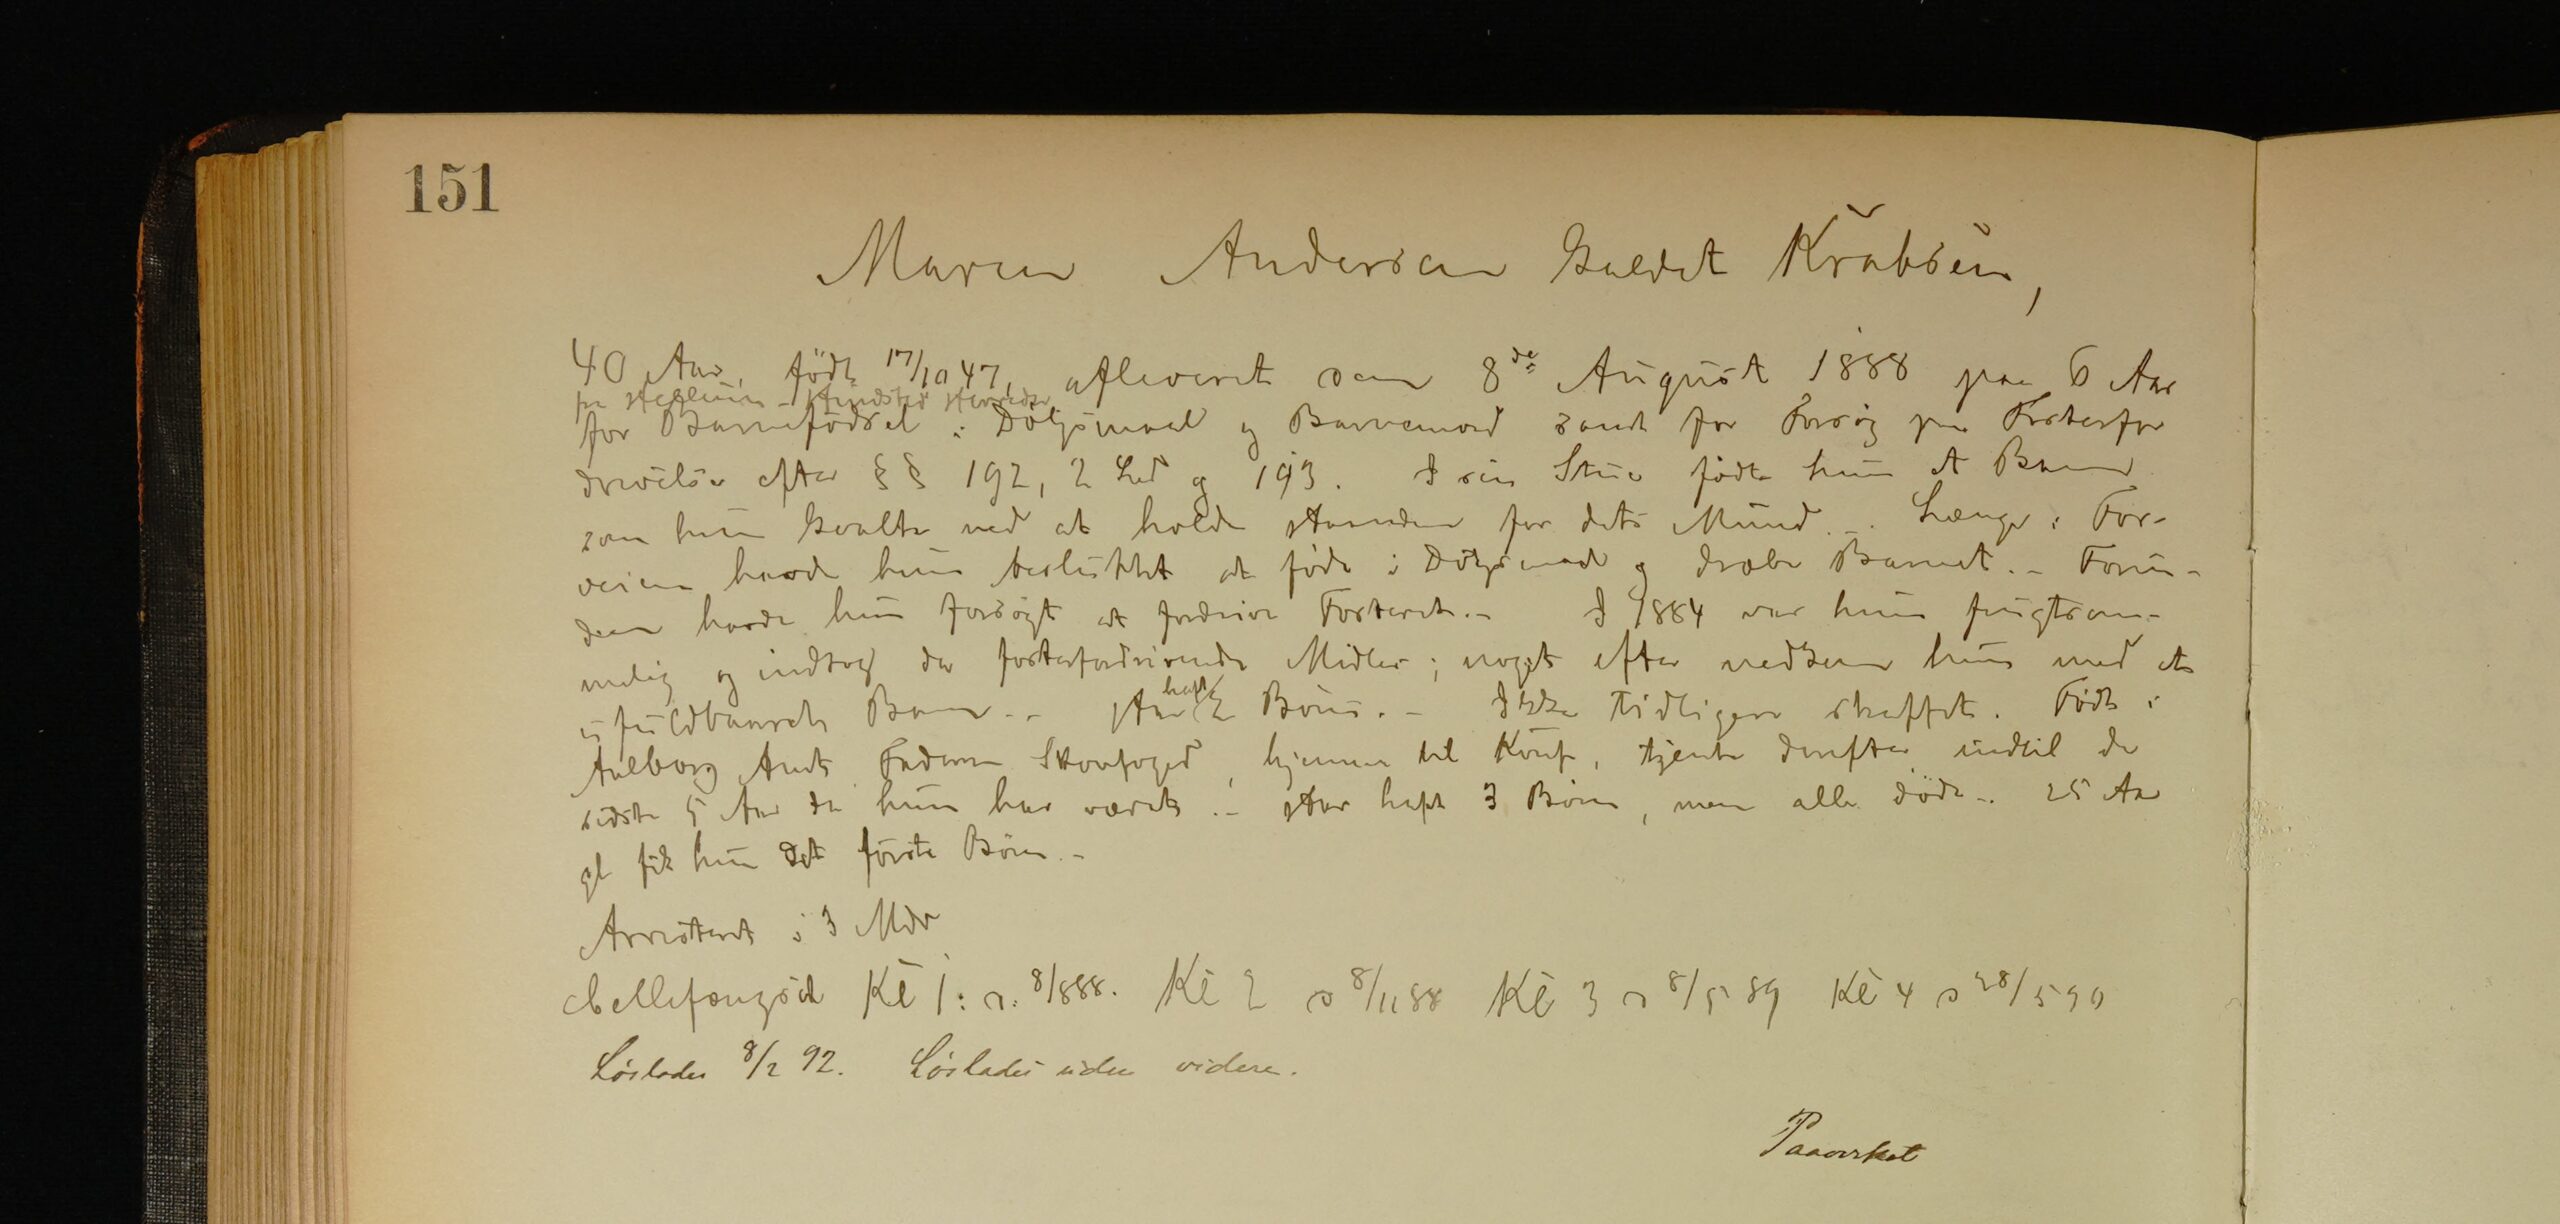 151
Maren Andersen kaldet Krabsen,
40 Aar, født 17/10 47, afleveret den 8de August 1888 paa 6 Aar
fra Hellum - Hindsted Herreder
for Barnefødsel i Dølgsmaal og Barnemord samt for Forsøg paa Fosterfor
drivelse efter §§ 192, 2 Led og 193. I sin Stue fødte hun et Barn
som hun kvalte ved at holde Haanden for dets Mund. - Længe i For-
veien havde hun besluttet at føde i Dølgsmaal og dræbe Barnet. - Foru-
den havde hun forsøgt at fordrive Fosteret. - I 1884 var hun frugtsom-
melig og indtog da fosterfordrivende Midler; noget efter nedkom hun med et
ufuldbaaret Barn. - Har haft 2 Børn. - Ikke tidligere straffet. Født i
Aalborg Amt Faderen Skovfoged, hjemme til Konf, tjente derefter indtil de
sidste 5 Aar da hun har været .- Har haft 3 Børn, men alle døde.- 25 Aar
gl fik hun det første Barn. -
Arresteret i 3 Mdr
Cellefængsel Kl 1: d. 8/888. Kl 2 d 8/11 88 Kl 3 d 8/5 89 Kl 4 d 28/5 90
Løslades 8/2 92. Løslades uden videre.
Paavirket